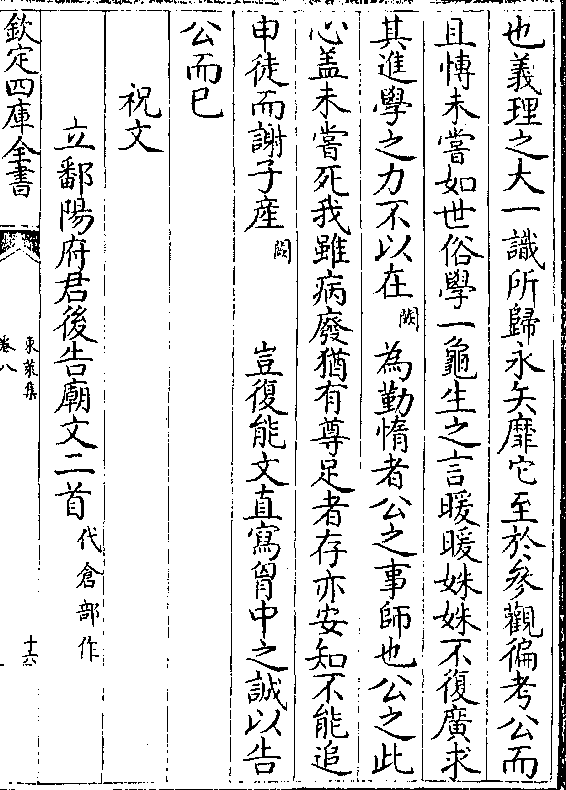 也義理之大一識所歸永矢靡它至於參觀徧考公而
且慱未嘗如世俗學一龜生之言暖暖姝姝不復廣求
其進學之力不以在闕為勤惰者公之事師也公之此
心盖未嘗死我雖病廢猶有尊足者存亦安知不能追
申徒而謝子產闕豈復能文直寫胷中之誠以告
公而已
祝文
立鄱陽府君後告廟文二首代倉部作
欽定四庫全書
東萊集
卷八
十六